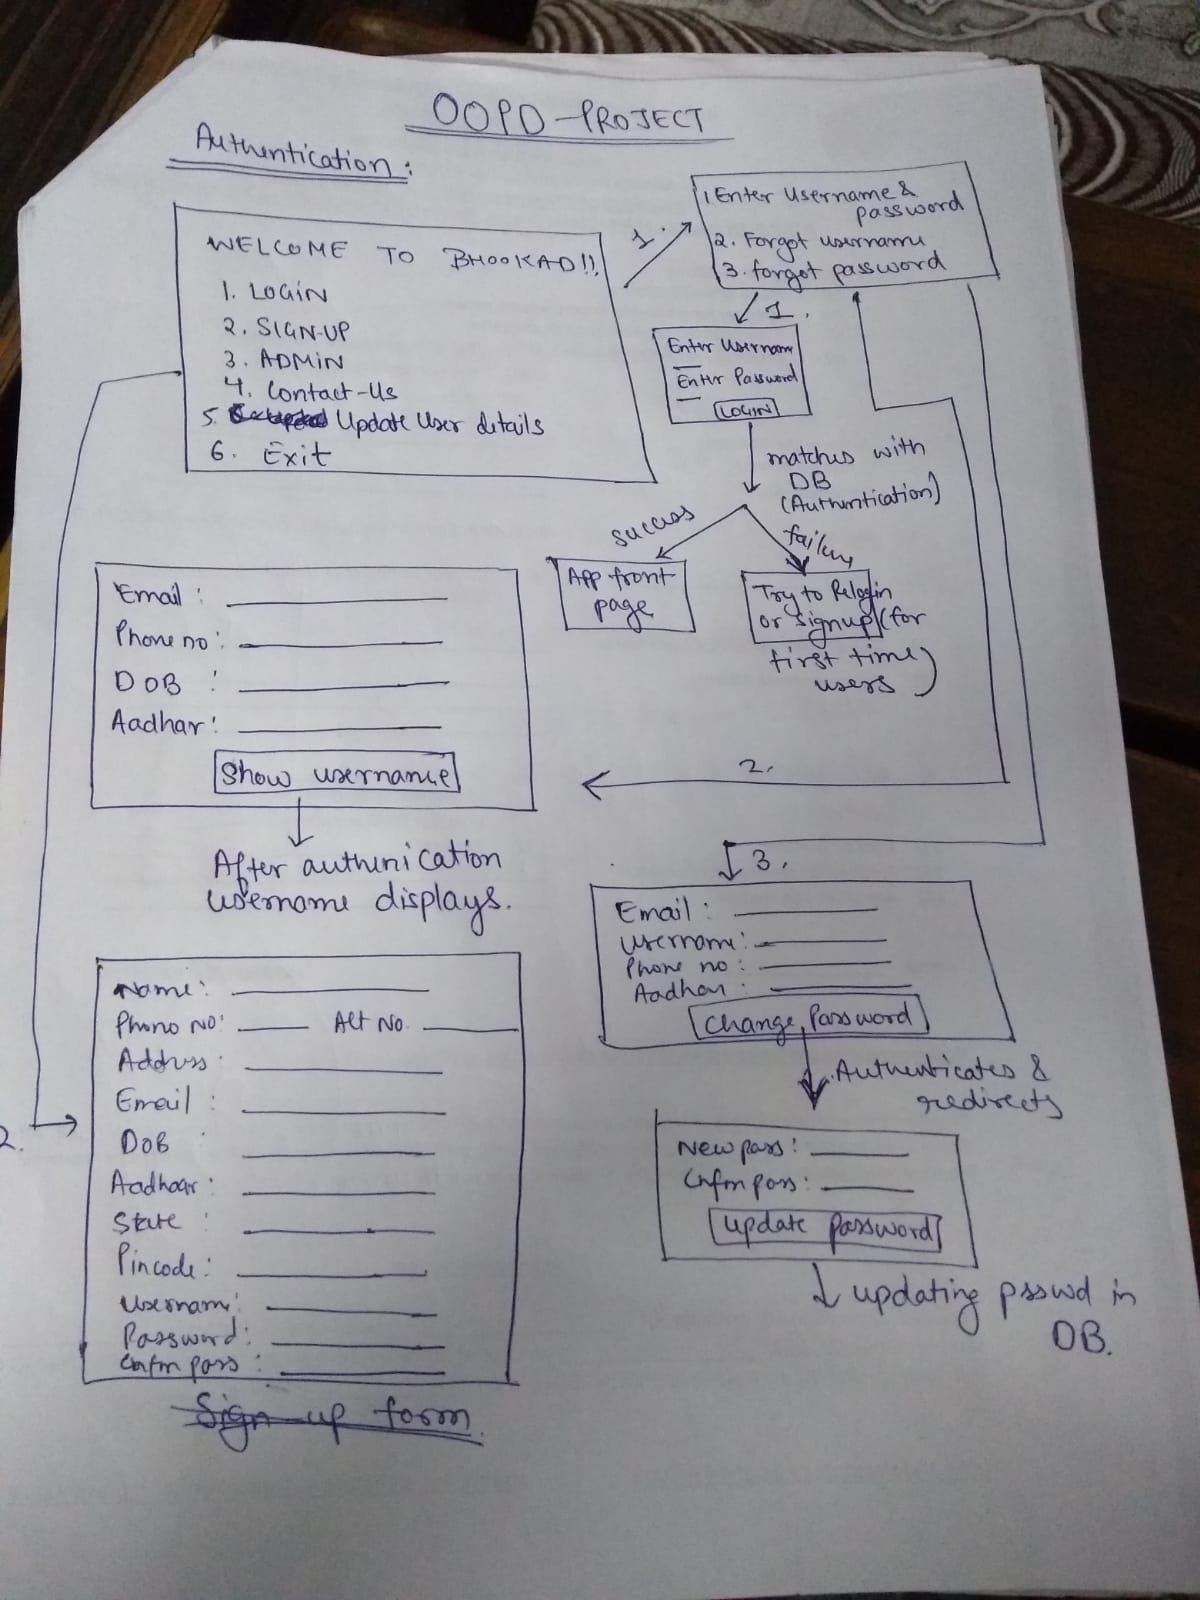 OOPD - PROJECT
Authentication :
WELCOME TO BHOOKAD!!
1. LOGIN
2. SIGN-UP
3. ADMIN
4. Contact-Us
5. Update User details
6. Exit
1.
1. Enter Username &
password
2. Forgot username
3. forgot password
1.
Enter Username
Enter Password
LOGIN
matches with
DB
(Authentication)
success
failure
App front
page
Try to Relogin
or signup (for
first time
users)
Email :
Phone no :
DOB :
Aadhar :
Show username
After authenication
username displays.
2.
3.
Email :
Username :
Phone no :
Aadhar :
Change Password
Authenticates &
redirects
New pass :
Cnfm pass :
update password
updating passwd in
DB.
2.
Name :
Phone No : Alt No.
Address :
Email :
DOB :
Aadhaar :
State :
Pincode :
Username :
Password :
Cnfm pass :
Sign-up form.